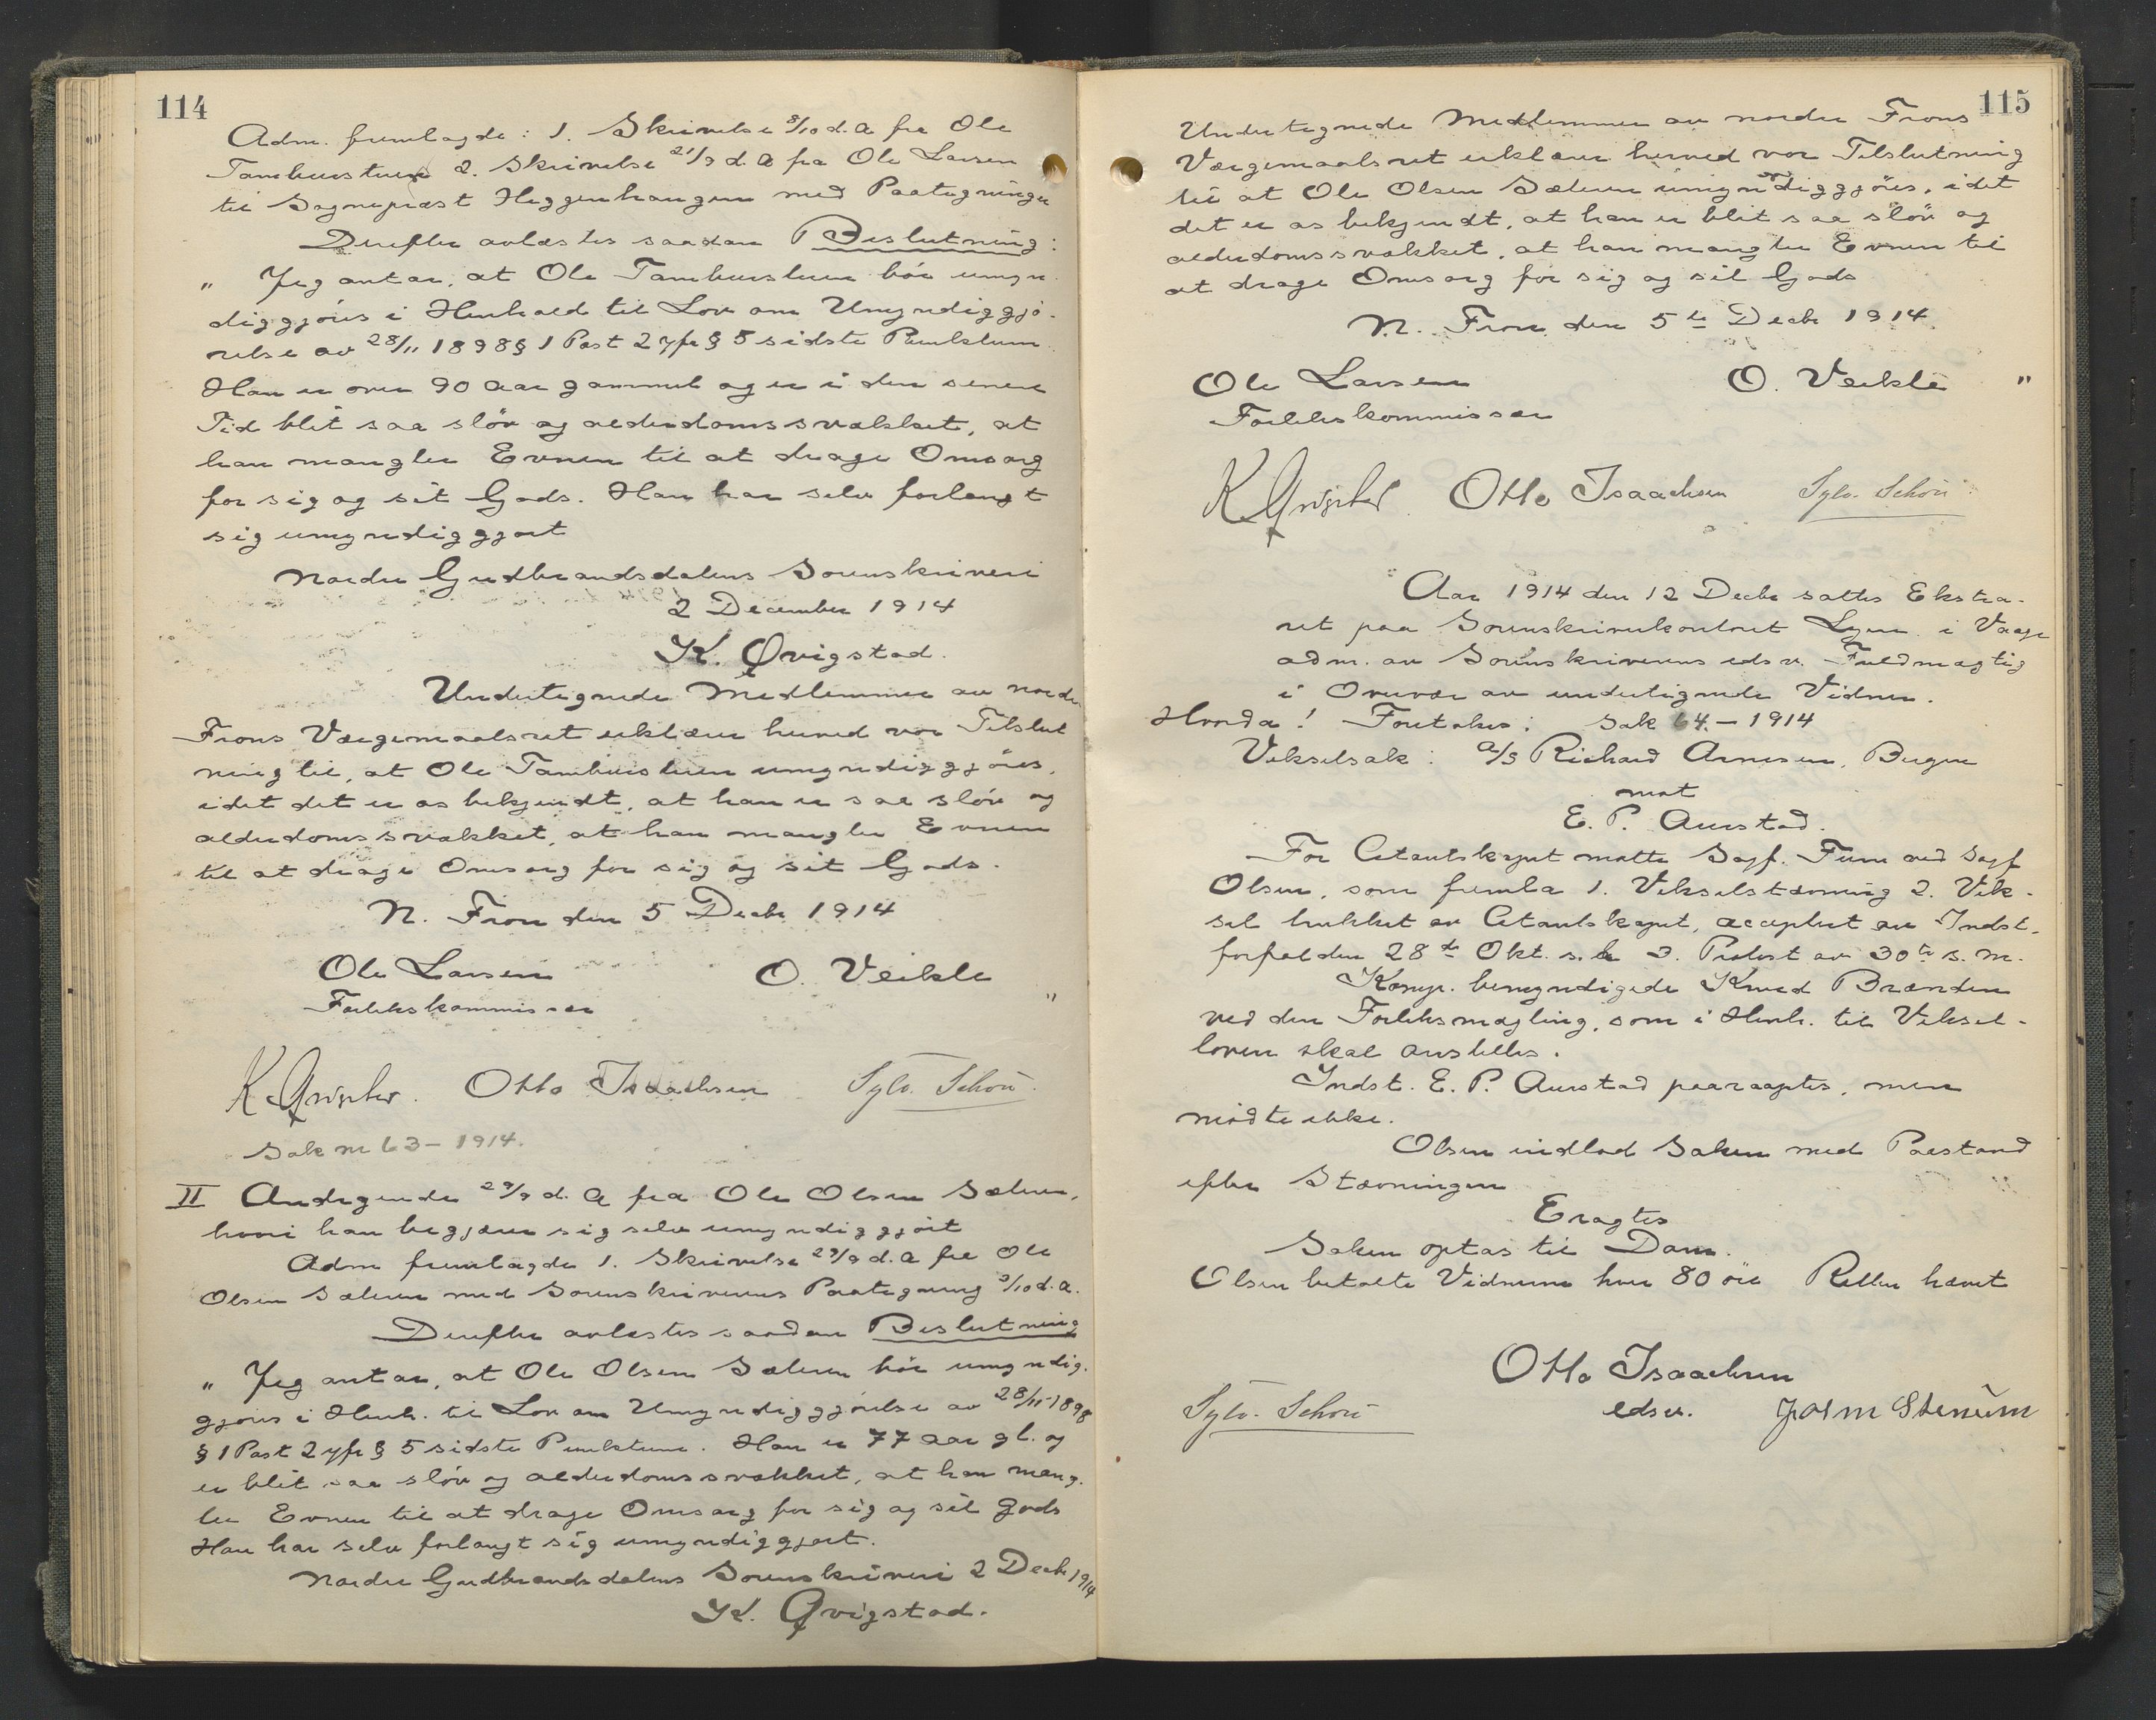 114
Adm. fremlagde: 1. Skrivelse 8/10 d. A fra Ole
Tambursteuen 2. Skrivelse 21/9 d. A fra Ole Larsen
til Sogneprest Heggenhaugen med Paategninger
Derefter avlæstes saadan Beslutning:
„ Jeg antar, at Ole Tambursteuen bör umyn
diggjöres i Henhold til Lov om Umyndiggjö-
relse av 28/11 1898 § 1 Post 2 jfr § 5 sidste Punktum
Han er over 90 Aar gammel og er i den senere
Tid blit saa slöv og alderdomssvækket, at
han mangler Evnen til at drage Omsorg
for sig og sit Gods. Han har selv forlangt
sig umyndiggjort
Nordre Gudbrandsdalens Sorenskriveri
2 December 1914
K. Qvigstad.
Undertegnede Medlemmer av nordre
Frons Værgemaalsret erklærer herved vor Tilslut
ning til, at Ole Tambursteuen umyndiggjöres,
idet det er os bekjendt, at han er saa slöv og
alderdomssvækket, at han mangler Evnen
til at drage Omsorg for sig og sit Gods.
N. Fron den 5 Decbr 1914
Ole Larsen O. Veikle
Forlikskommissær "
K Qvigstad. Otto Isaachsen Sylv. Schou.
Sak nr 63 – 1914.
II Andragende 29/9 d. A fra Ole Olsen Sæteren,
hvori han begjærer sig selv umyndiggjort
Adm fremlagde 1. Skrivelse 29/9 d. A fra Ole
Olsen Sæteren med Sorenskriverens Paategning 3/10 d. A.
Derefter avlæstes saadan Beslutning
„ Jeg antar, at Ole Olsen Sæteren bör umyndig-
gjöres i Henh. til Lov om Umyndiggjörelse av 28/11 1898
§ 1 Post 2 jfr § 5 sidste Punktum. Han er 77 Aar gl. og
er blit saa slöv og alderdomssvækket, at han mang-
ler Evnen til at drage Omsorg for sig og sit Gods
Han har selv forlangt sig umyndiggjort.
Nordre Gudbrandsdalens Sorenskriveri 2 Decbr 1914
K. Qvigstad.
115
Undertegnede Medlemmer av nordre Frons
Værgemaalsret erklærer herved vor Tilslutning
til at Ole Olsen Sæteren umyndiggjöres, idet
det er os bekjendt, at han er blit saa slöv og
alderdomssvækket, at han mangler Evnen til
at drage Omsorg for sig og sit Gods
N. Fron den 5te Decbr 1914
Ole Larsen O. Veikle "
Forlikskommissær
K Qvigstad. Otto Isaachsen Sylv. Schou
Aar 1914 den 12 Decbr sattes Ekstra-
ret paa Sorenskriverkontoret Lyen i Vaage
adm. av Sorenskriverens edsv. Fuldmægtig
i Overvær av undertegnede Vidner.
Hvorda! Foretokes: Sak 64. – 1914
Vekselsak: A/S Richard Arnesen, Bergen
mot
E. P. Aurstad.
For Citantskapet mötte Sagf. Furu ved Sagf
Olsen, som fremla 1. Vekselstævning 2. Vek-
sel trukket av Citantskapet, acceptert av Indst.
forfalden 28de Okt. s. A 3. Protest av 30te s. M.
Komp. bemyndigede Knud Brænden
ved den Forliksmægling, som i Henh. til Veksel-
loven skal anstilles.
Indst. E. P. Aurstad paaraaptes, men
mödte ikke.
Olsen indlod Saken med Paastand
efter Stævningen
Eragtes
Saken optas til Dom.
Olsen betalte Vidnerne hver 80 öre Retten hævet
Otto Isaachsen
edsv.
Sylv. Schou Jorm Stenum